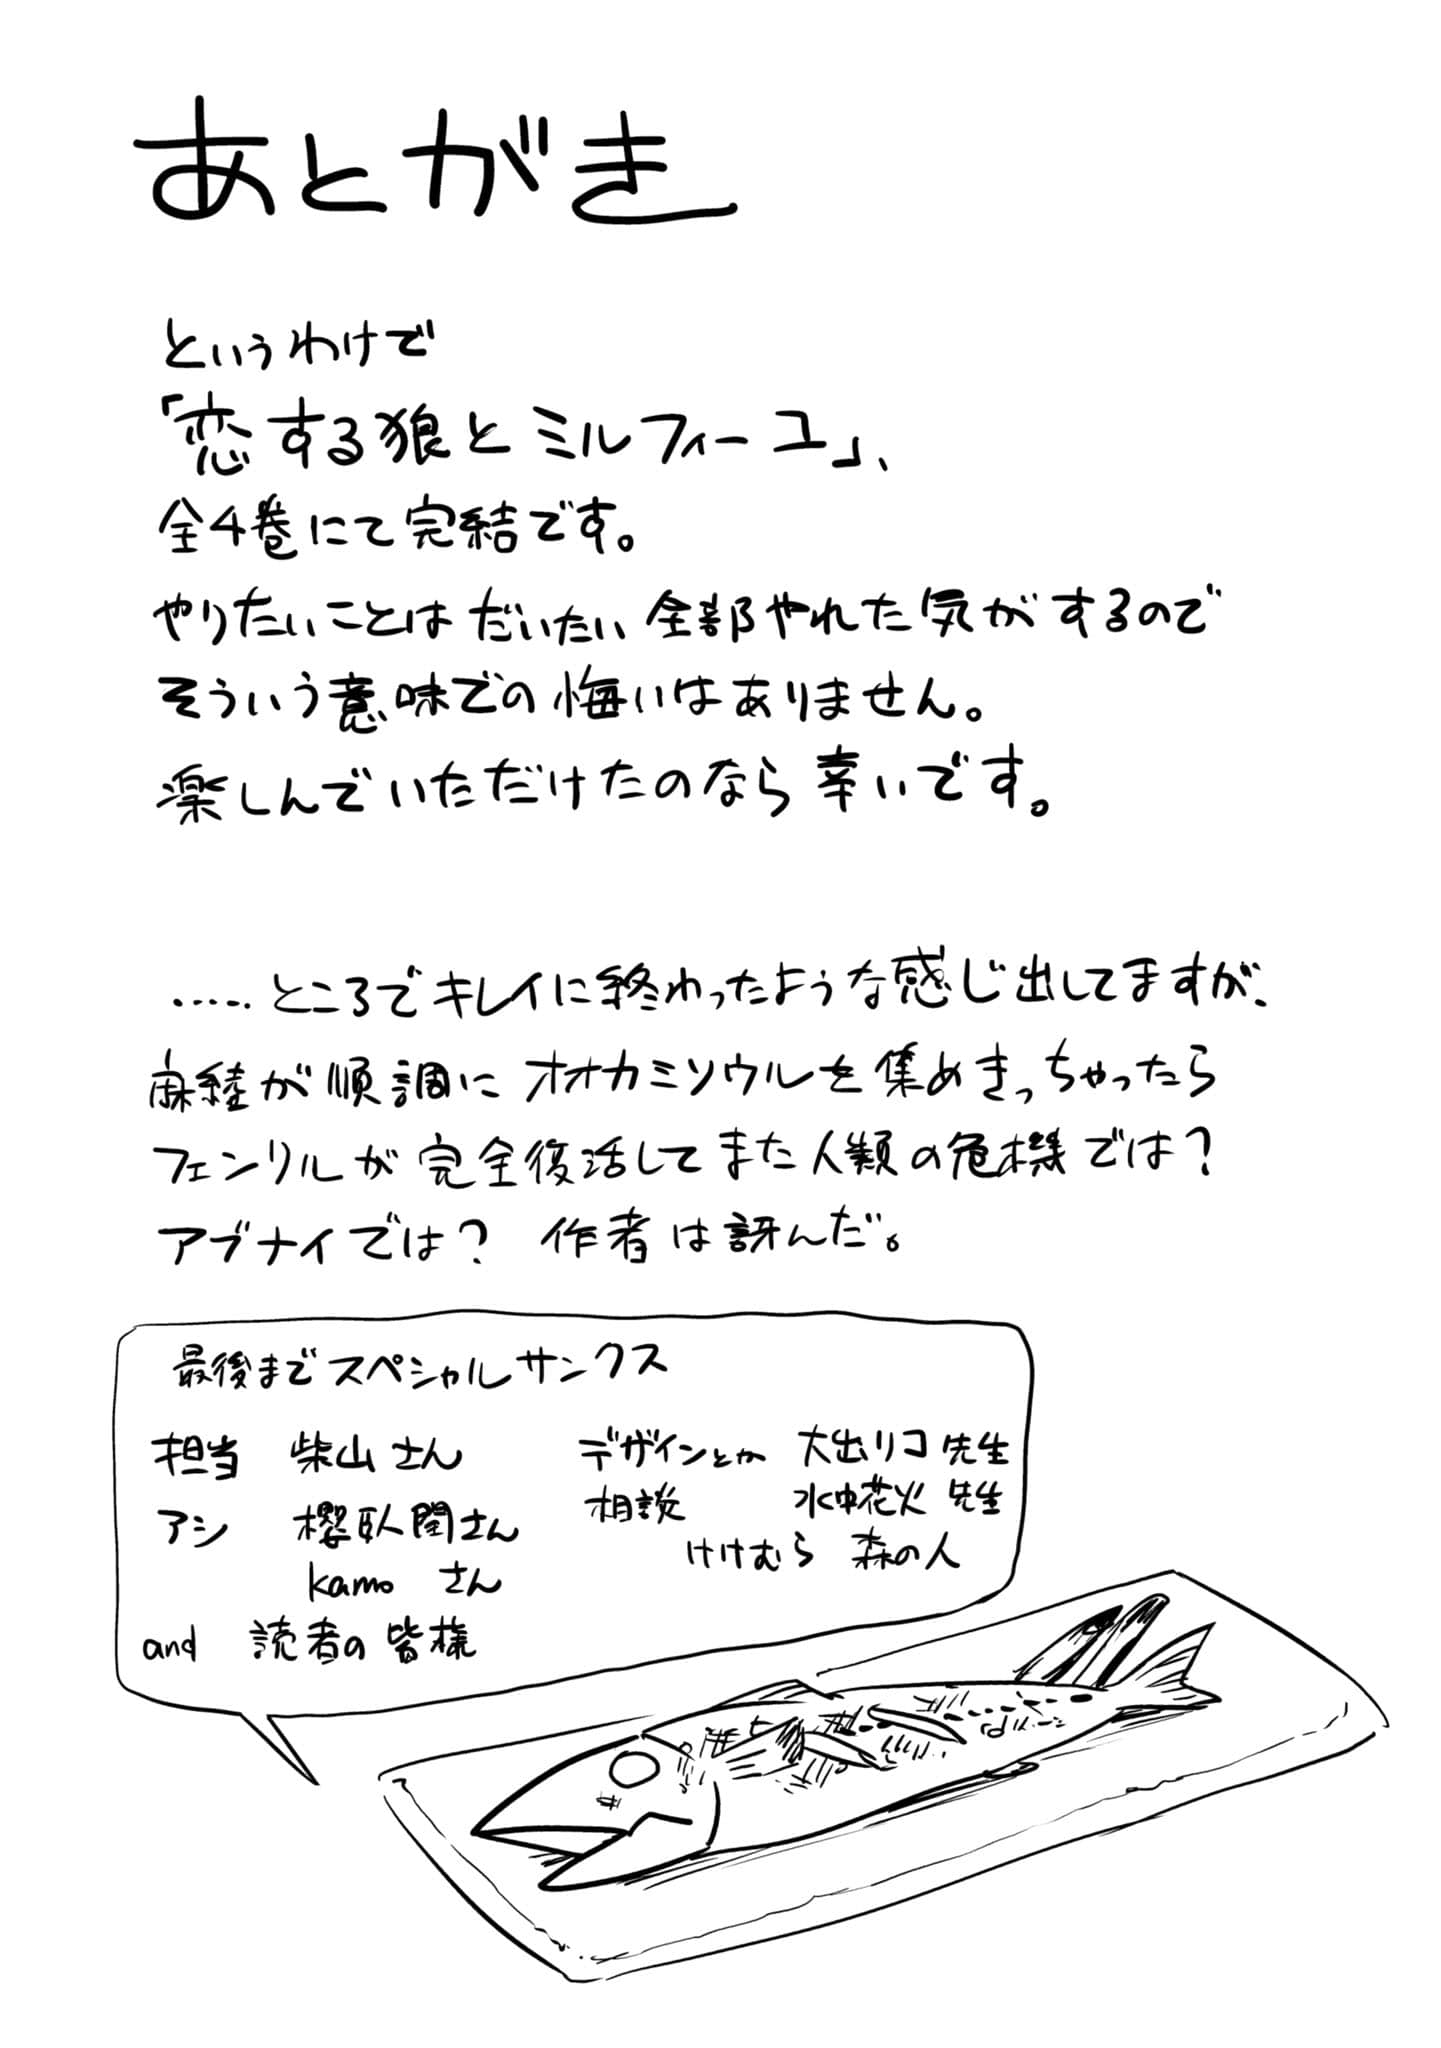 あとがき
というわけで
「恋する狼とミルフィーユ」、
全4巻にて完結です。
やりたいことはだいたい全部やれた気がするので
そういう意味での悔いはありません。
楽しんでいただけたのなら幸いです。
……ところでキレイに終わったような感じ出してますが、
麻綾が順調にオオカミソウルを集めきっちゃったら
フェンリルが完全復活してまた人類の危機では?
アブナイでは? 作者は訝んだ。
最後までスペシャルサンクス
担当 柴山さん
アシ 櫻臥閏さん
kamo さん
デザインとか 大出リコ先生
相談 水中花火先生
けけむら 森の人
and 読者の皆様